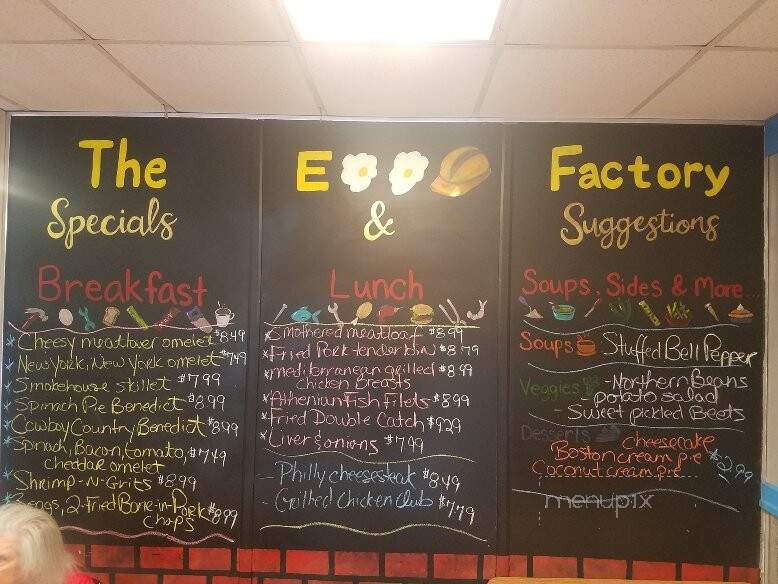 The
Specials
Breakfast
* Cheesy meatlover omelet $8.49
* New York, New York omelet $7.49
* Smokehouse skillet $7.99
* Spinach Pie Benedict $8.99
* Cowboy Country Benedict $8.99
* Spinach, Bacon, tomato, $7.49
cheddar omelet
* Shrimp-N-Grits $8.99
2-Fried Bone-in-Pork $8.99
chops
E
&
Lunch
* Smothered meatloaf $8.99
* Fried Pork tenderloin $8.79
* mediterranean grilled $8.99
chicken breasts
* Athenian Fish Filets $8.99
* Fried Double Catch $9.29
* Liver & onions $7.99
- Philly cheesesteak $8.49
- Grilled Chicken Club $7.79
Factory
Suggestions
Soups, Sides & More
Soups Stuffed Bell Pepper
Veggies - Northern Beans
- potato salad
- Sweet pickled Beets
Desserts cheesecake
Boston cream pie $2.99
Coconut cream pie
menupix